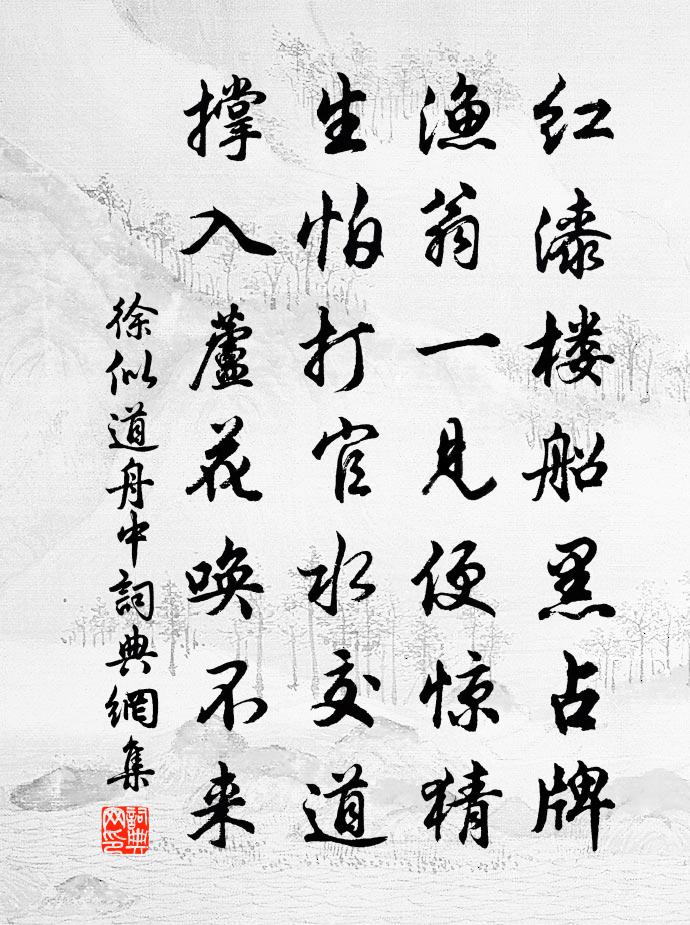 红漆楼船黑占牌
渔翁一见便惊猜
生怕打官水交道
撑入蘆花唤不来
徐似道舟中詞典網集
詞典网印